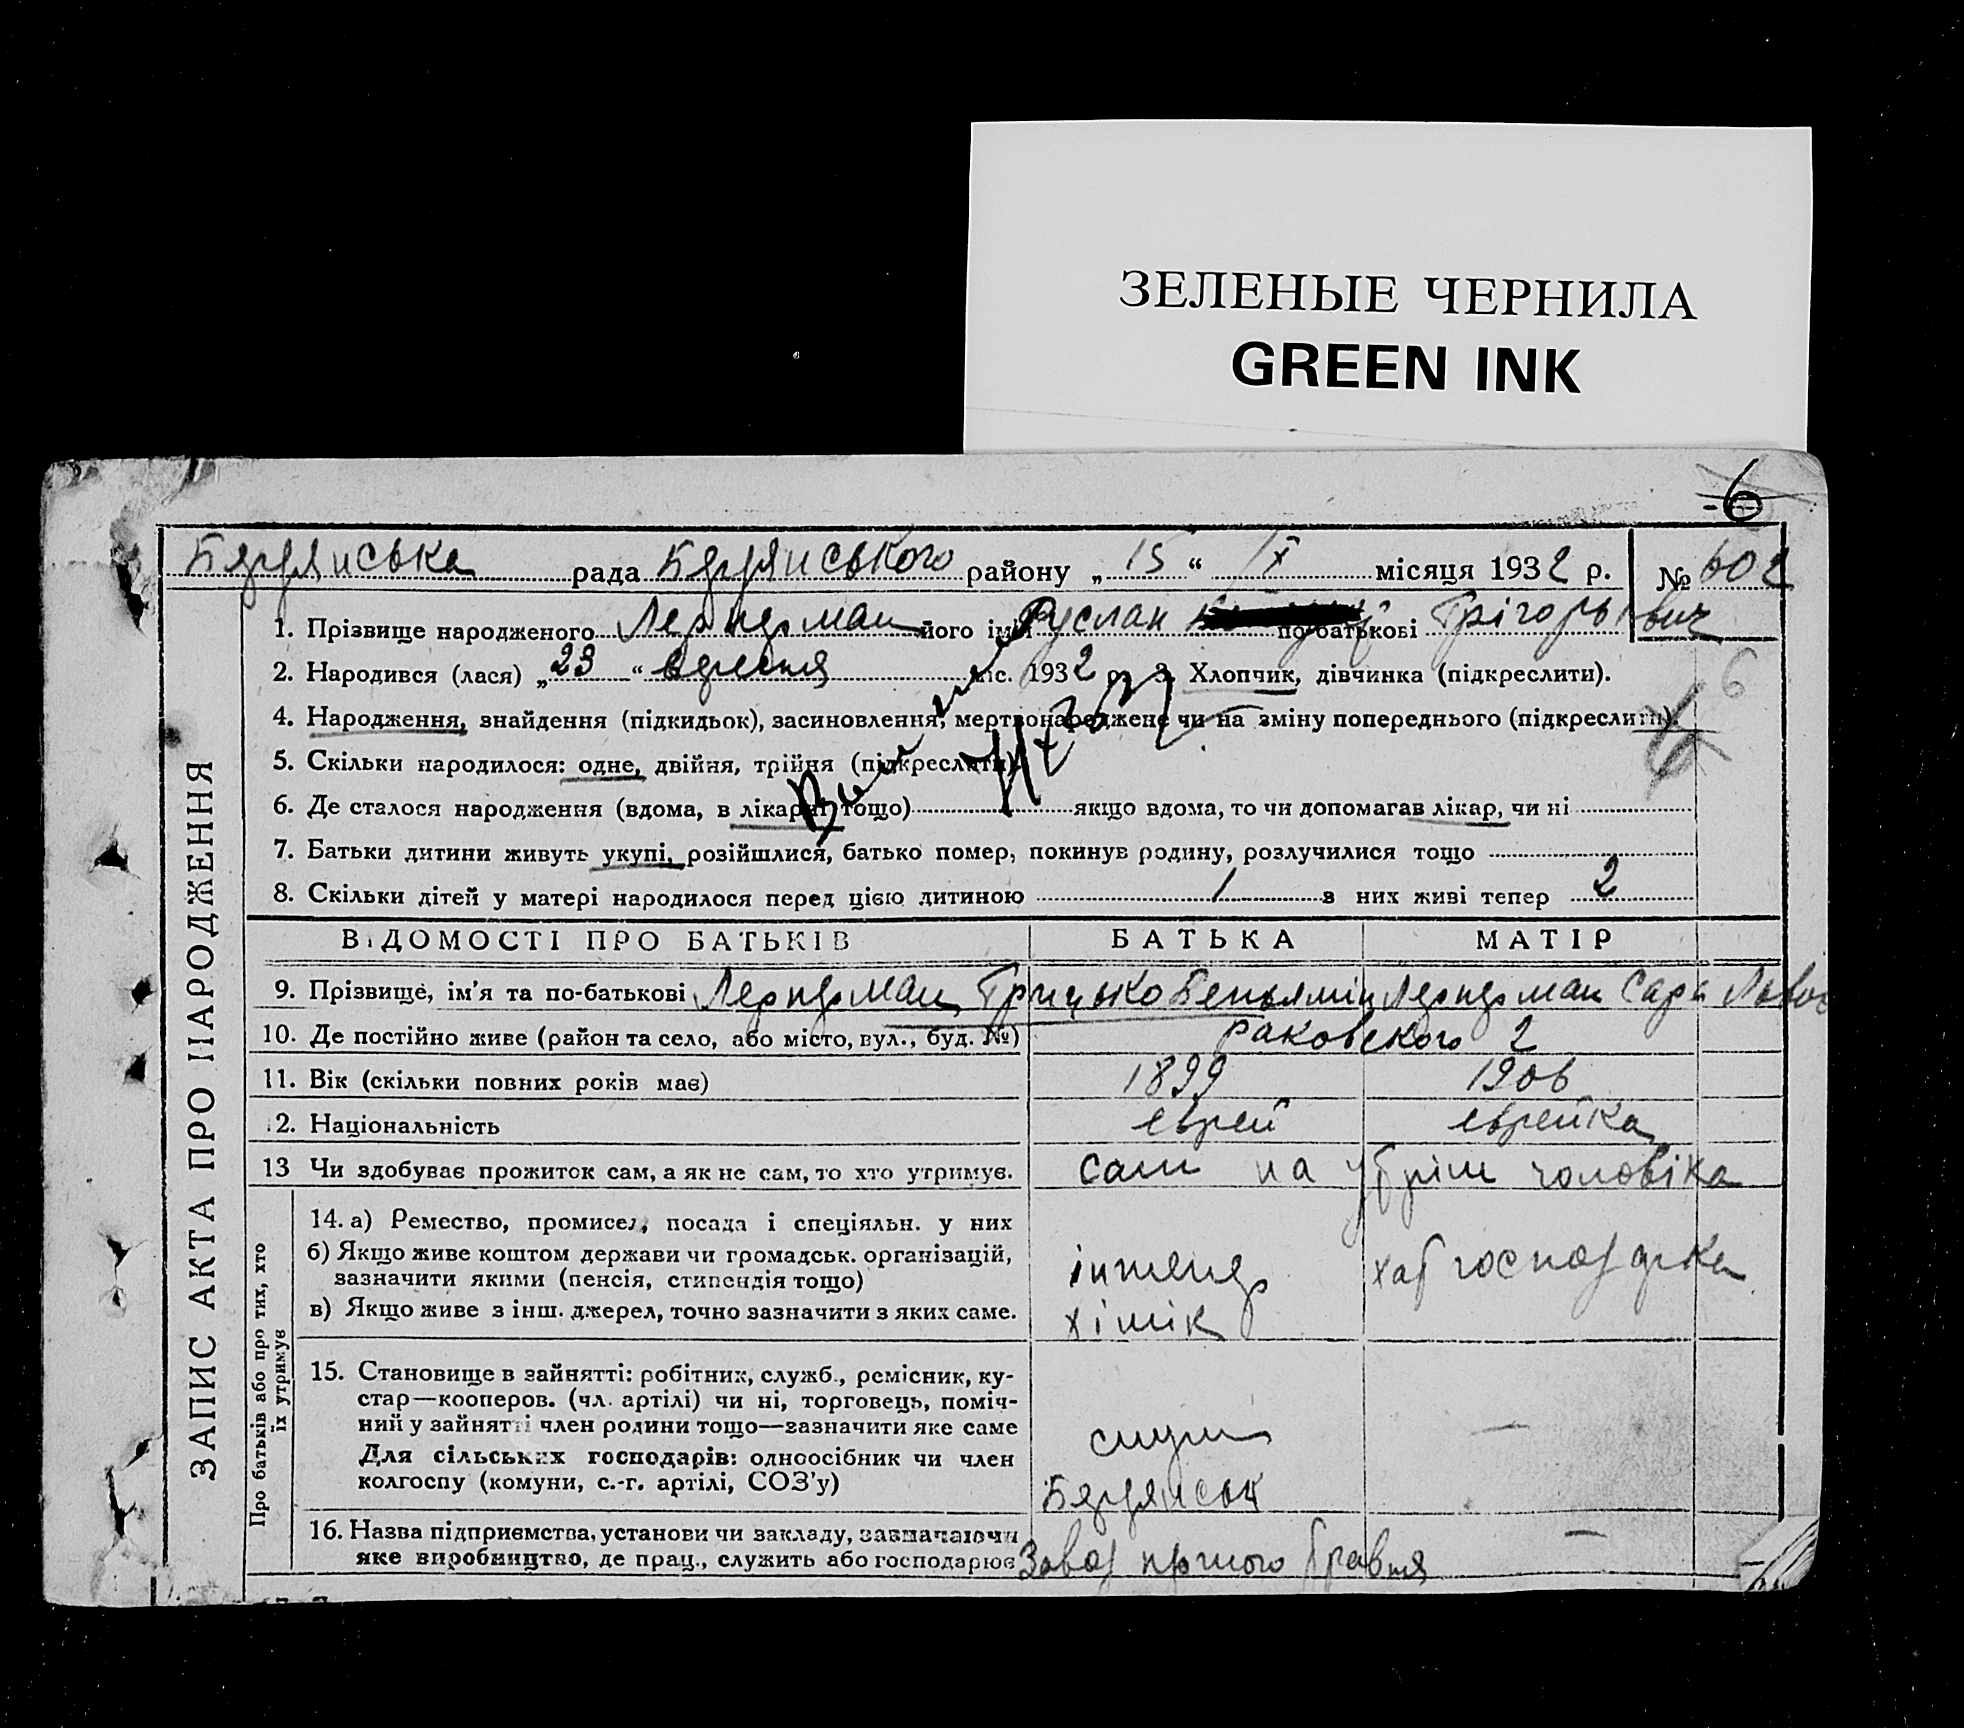 ЗЕЛЕНЫЕ ЧЕРНИЛА
GREEN INK
6
Бердянська рада Бердянського району „ 15 “ IX місяця 1932 р. № 602
1. Прізвище народженого Лернерман його імя Руслан по-батькові Грігорьевич
2. Народився (лася) „ 23 “ вересня міс. 1932 р. 3. Хлопчик, дівчинка (підкреслити).
6
4. Народження, знайдення (підкидьок), засиновлення, мертвонароджене чи на зміну попереднього (підкреслити).
5. Скільки народилося: одне, двійня, трійня (підкреслити)
6. Де сталося народження (вдома, в лікарні тощо) якщо вдома, то чи допомагав лікар, чи ні
7. Батьки дитини живуть укупі, розійшлися, батько помер, покинув родину, розлучилися тощо
8. Скільки дітей у матері народилося перед цією дитиною 1 з них живі тепер 2
ВІДОМОСТІ ПРО БАТЬКІВ БАТЬКА МАТІР
9. Прізвище, ім’я та по-батькові Лернерман Грицько Беньямін Лернерман Сара
10. Де постійно живе (район та село, або місто, вул., буд. №) Раковского 2
11. Вік (скільки повних років має) 1899 1906
12. Національність еврей еврейка
13 Чи здобуває прожиток сам, а як не сам, то хто утримує. сам на утрім чоловіка
14. а) Ремество, промисел, посада і спеціяльн. у них
б) Якщо живе коштом держави чи громадськ. організацій,
зазначити якими (пенсія, стипендія тощо) інженер хат господарка
в) Якщо живе з інш. джерел, точно зазначити з яких саме. хімік
15. Становище в зайнятті: робітник, служб., ремісник, ку-
стар—кооперов. (чл. артілі) чи ні, торговець, поміч-
ний у зайнятті член родини тощо—зазначити яке саме служ —
Для сільських господарів: одноосібник чи член
колгоспу (комуни, с.-г. артілі, СОЗ’у) Бердянськ
16. Назва підприємства, установи чи закладу, зазначаючи —
яке виробництво, де прац., служить або господарює Завод першого травня
ЗАПИС АКТА ПРО НАРОДЖЕННЯ
Про батьків або про тих, хто
їх утримує